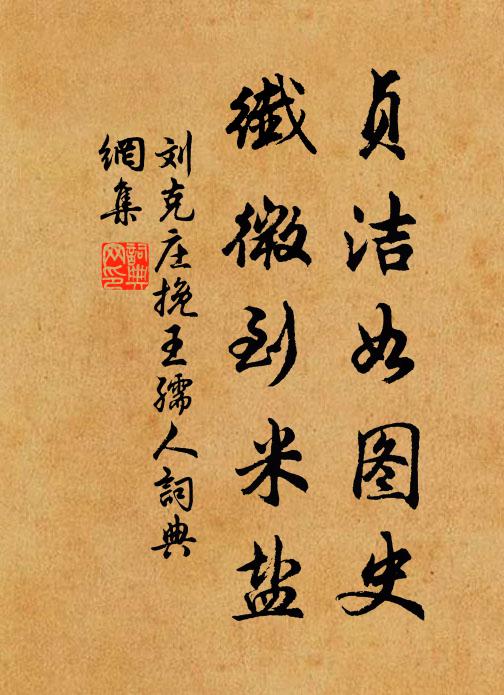 贞洁如图史
纖微到米盐
刘克庄挽王孺人詞典
網集
詞典网印